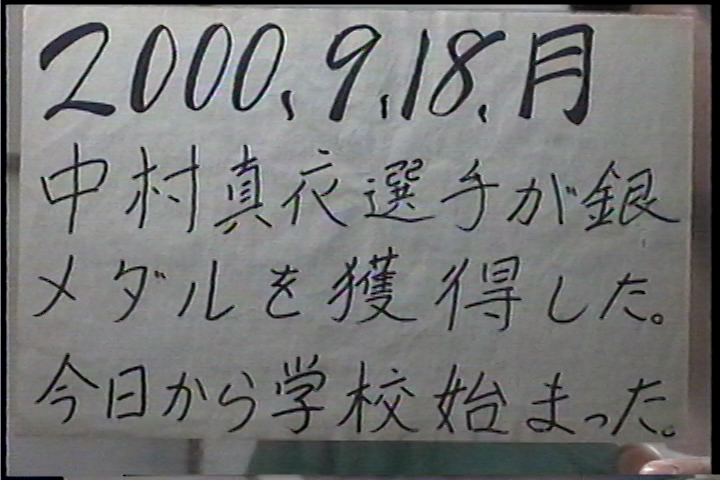 2000、9、18、月
中村真衣選手が銀
メダルを獲得した。
今日から学校始まった。